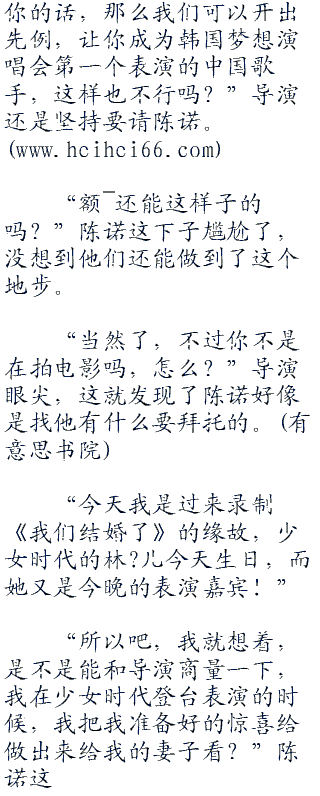 你的话，那么我们可以开出
先例，让你成为韩国梦想演
唱会第一个表演的中国歌
手，这样也不行吗？”导演
还是坚持要请陈诺。
(www.hcihci66.com)
“额¯还能这样子的
吗？”陈诺这下子尴尬了，
没想到他们还能做到了这个
地步。
“当然了，不过你不是
在拍电影吗，怎么？”导演
眼尖，这就发现了陈诺好像
是找他有什么要拜托的。(有
意思书院)
“今天我是过来录制
《我们结婚了》的缘故，少
女时代的林?儿今天生日，而
她又是今晚的表演嘉宾！”
“所以吧，我就想着，
是不是能和导演商量一下，
我在少女时代登台表演的时
候，我把我准备好的惊喜给
做出来给我的妻子看？”陈
诺这